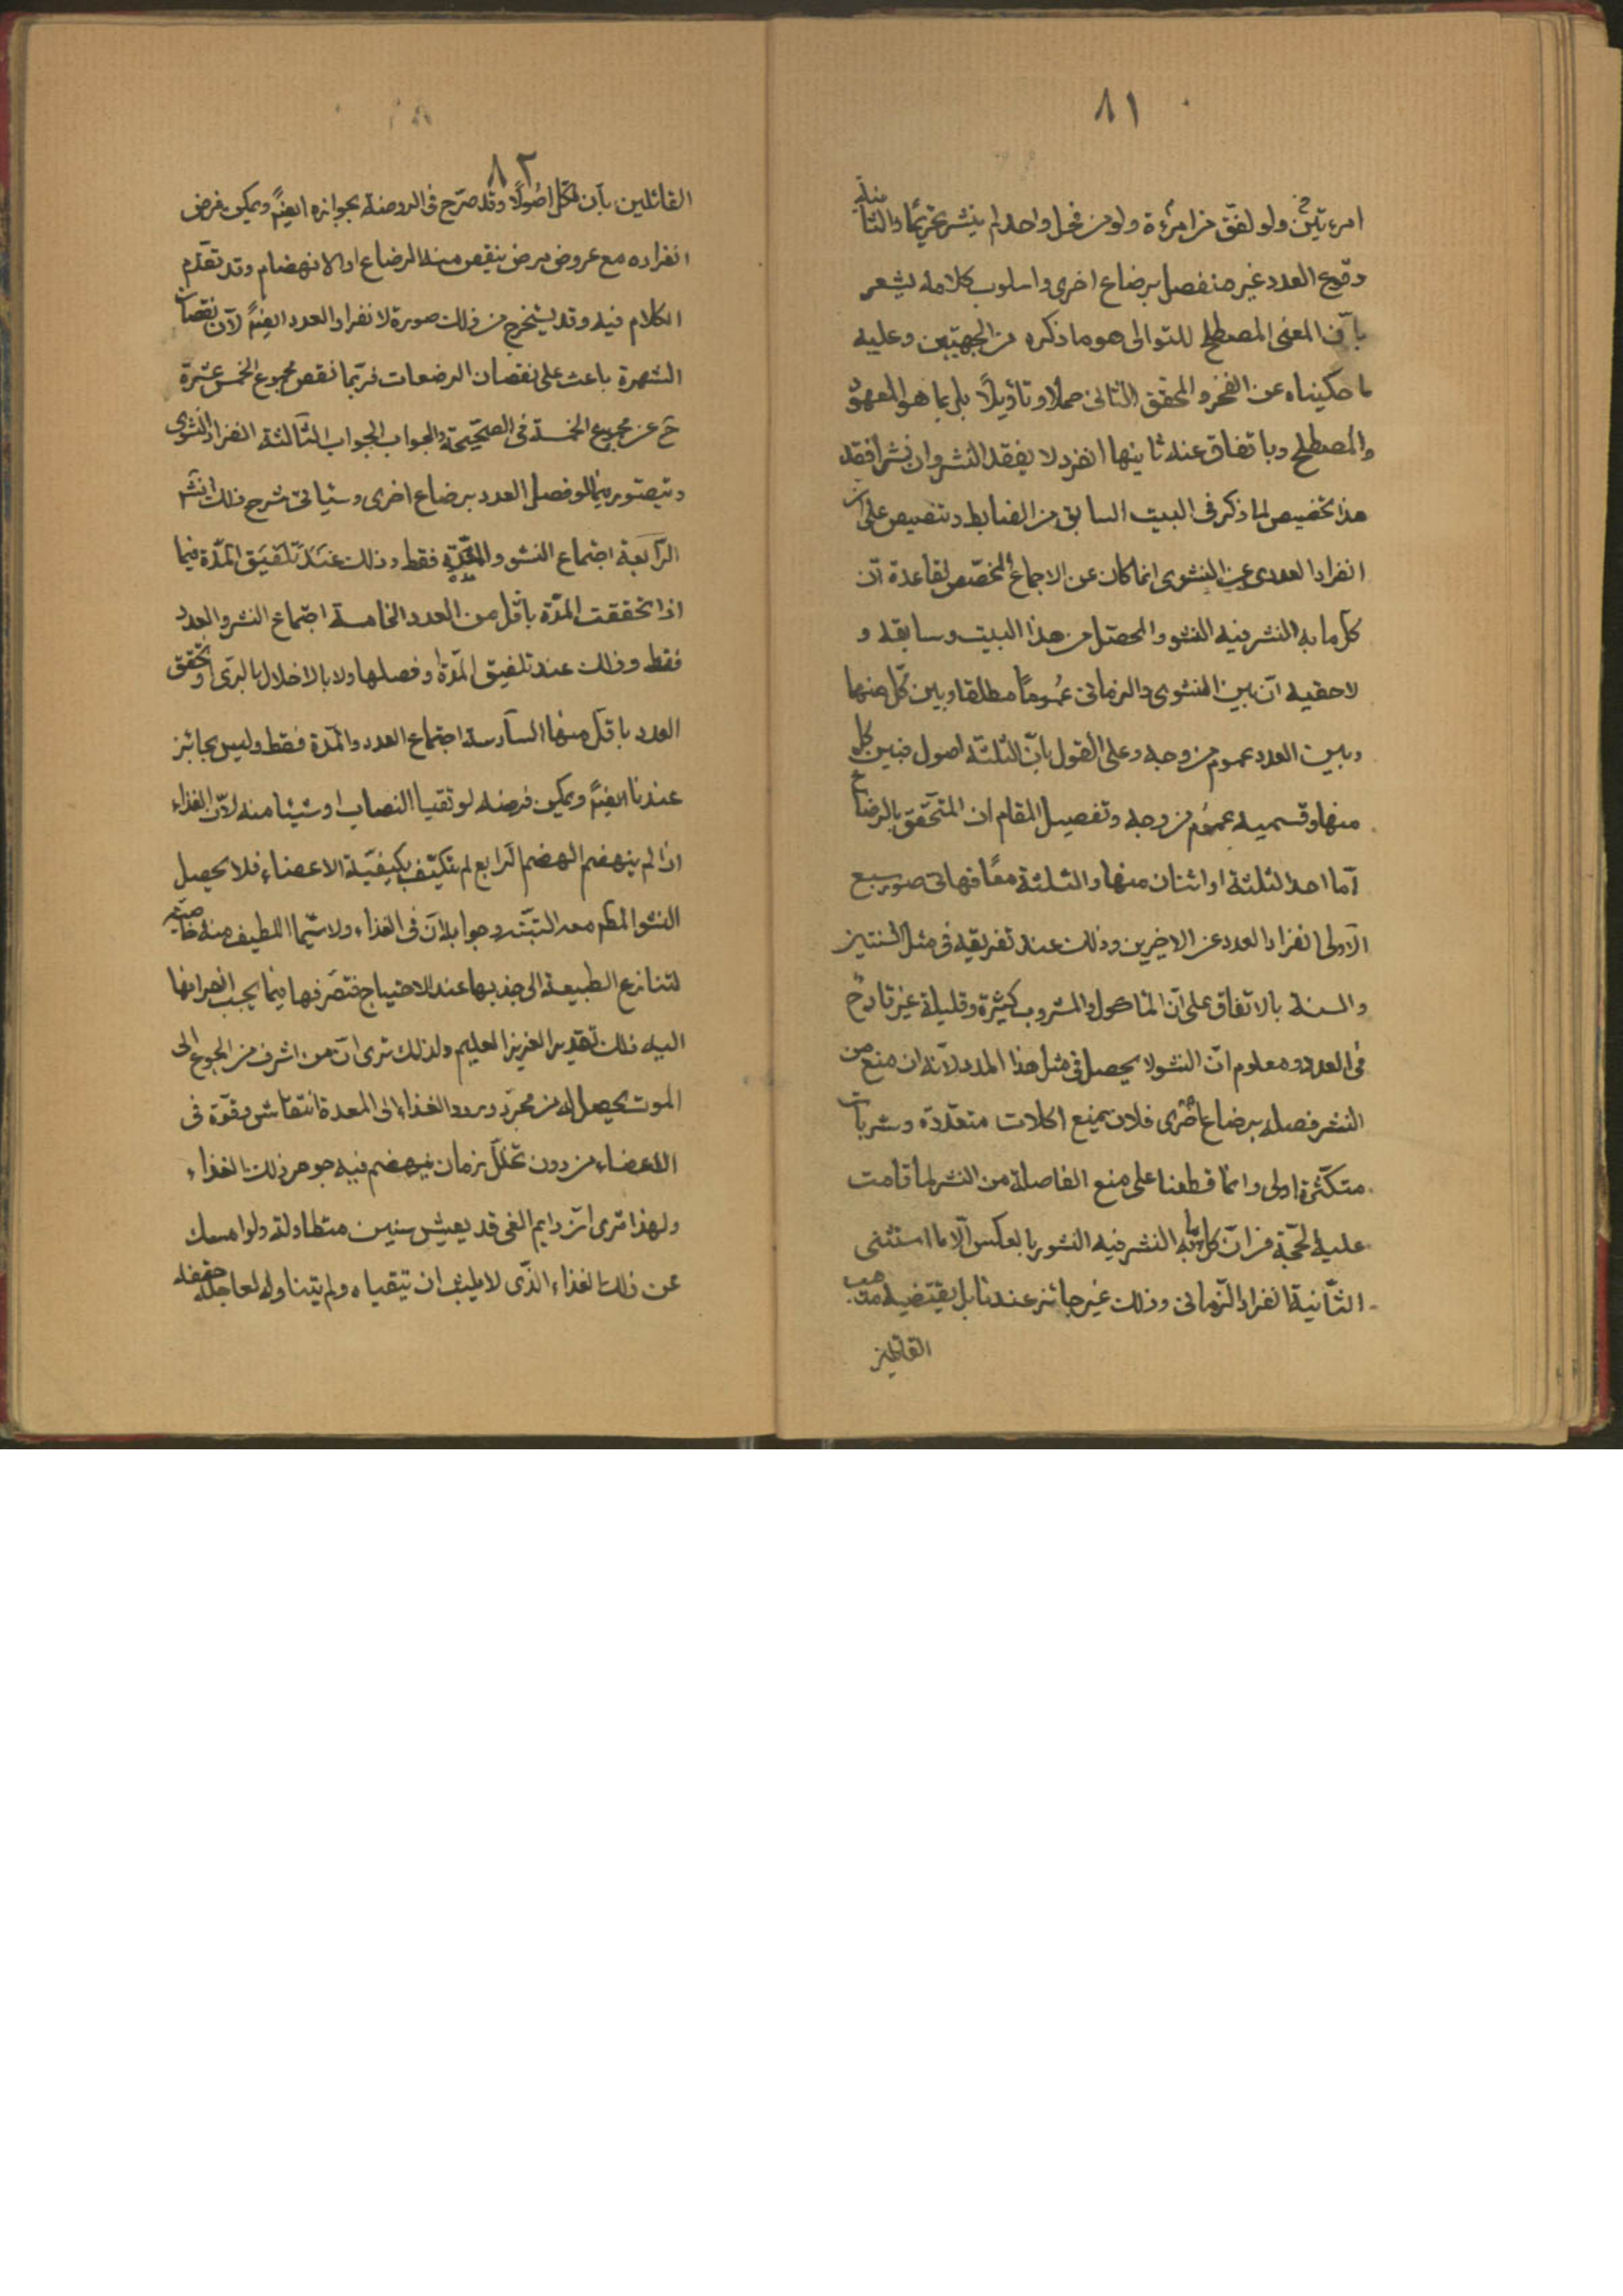 ٨١
امرءتين ولو لفّق من امرءة ولو من فحل واحد لم ينشر تحريمًا والثانية
وقوع العدد غير منفصل برضاع اخرى واسلوب كلامه يشعر
بأن المعنى المصطلح للتوالى هو ما ذكره من الجهتين وعليه
ما حكيناه عن الفخر والمحقق الثانى حملا وتأويلًا بل ربما هو المعهود
والمصطلح وباتفاق عنه ثانيها انفرد لا يفقد النشر وان نشرا فقد
هذا تخصيص لما ذكر فى البيت السابق من الضابط وتنصيص على ان
انفراد العددى عن النشوى انما كان عن الاجماع المخصّص لقاعدة ان
كل ما به النشر فيه النشو والمحصّل من هذا البيت وسابقه و
لاحقيه انّ بين النشوى والزمانى عمومًا مطلقا وبين كلّ منهما
وبين العدد عموم من وجه وعلى القول بانّ الثلثة اصول فبين كل
منها وقسميه عموم من وجه وتفصيل المقام ان المتحقّق بالرضاع
امّا احد الثلثة او اثنان منها والثلثة معًا فهاتى صور سبع
الاولى انفراد العدد عن الاخيرين وذلك عند تفريقه فى مثل السنتين
والسنة بالاتفاق على انّ المأكول والمشروب كثيرة وقليلة غير قادح
فى العدد ومعلوم انّ النشو لا يحصل فى مثل هذا المدد لانّه ان منع من
النشر فصله برضاع اخرى فلان يمنع اكلات متعدّدة وشربات
متكثّرة اولى وانّما قطعنا على منع الفاصلة من النشر لما قامت
عليه الحجّة من انّ كل ما به النشر فيه النشو وبالعكس الّا ما استثنى
الثّانية انفراد الزّمانى وذلك غير جائز عندنا بل يقتضيه مذهب
القائلين
٨٢
القائلين بأن لكل اصُولًا وقد صرّح فى الروضة بجوازه ايضًا ويمكن فرض
انفراده مع عروض مرض ينقص منه الرضاع او الانهضام وقد تقدّم
الكلام فيه وقد يستخرج من ذلك صورة لانفراد العدد ايضًا لأن نقصان
الشهوة باعث على نقصان الرضعات فربّما نقص مجموع الخمس عشرة
ح عن مجموع الخمسة فى الصحيحة والجواب الجواب الثالثة انفراد النشوى
ويتصوّر فيما لو فصل العدد برضاع اخرى وسيأتى شرح ذلك انشا
الرّابعة اجتماع النشو والمدّة فقط وذلك عند تلفيق المدّة فيما
اذا تحققت المدّة باقل من العدد الخامسة اجتماع النشو والعدد
فقط وذلك عند تلفيق المدّة او فصلها ولا بالاخلال بالرّى او تحقق
العدد باقل منها السّادسة اجتماع العدد والمدّة فقط وليس بجائز
عندنا ايضًا ويمكن فرضه لو تقيا النصاب او شيئا منه لأنّ الغذاء
اذا لم ينهضم الهضم الرابع لم يتكيّف بكيفيّة الاعضاء فلا يحصل
النشو المطم معه البتّة وجوابه لأنّ فى الغذاء ولا سيّما اللطيف منه خاصيّة
لتنازع الطبيعة الى جذبها عند الاحتياج فتصرفها فيما يجب انصرافها
اليه ذلك تقدير العزيز العليم ولذلك ترى انّ من اشرف من الجوع الى
الموت يحصل له من مجرّد ورود الغذاء الى المعدة انتعاش وقوّة فى
الاعضاء من دون تخلّل زمان ينهضم فيه جوهر ذلك الغذاء
ولهذا ترى انّ دايم القى قد يعيش سنين متطاولة ولو امسك
عن ذلك الغذاء الذّى لا يلبث ان يتقياه ولم يتناوله لعاجله حتفه